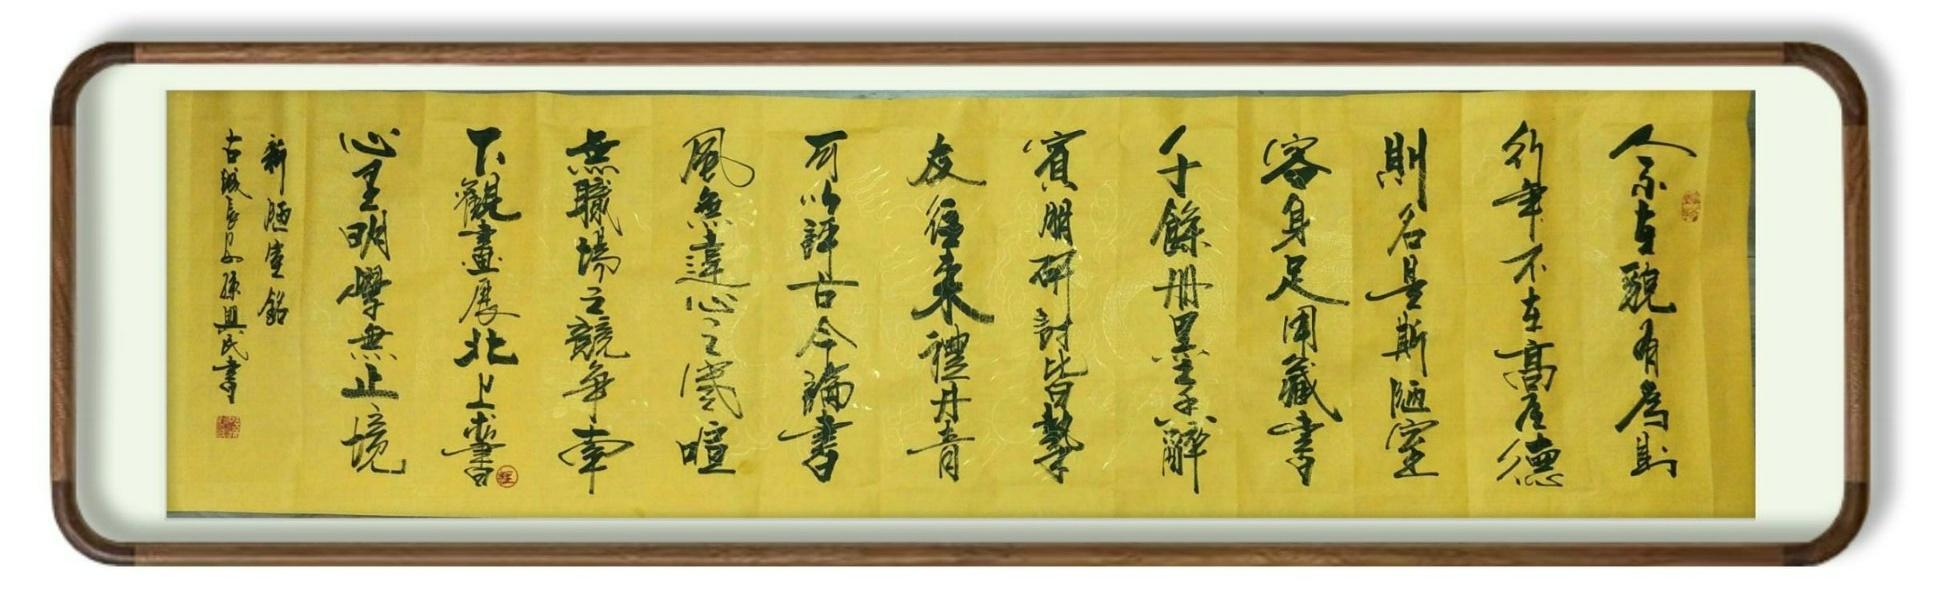 人不在貌有為財
行筆不在高有德
則名是斯陋室
容身足用藏書
千餘冊墨香解
賓朋研討皆摯
友往來禮丹青
可以評古今論書
風無違心之寒暄
無職場之競爭南
下觀畫展北上書
心里明學無止境
新陋室銘
古城長安孫興民書